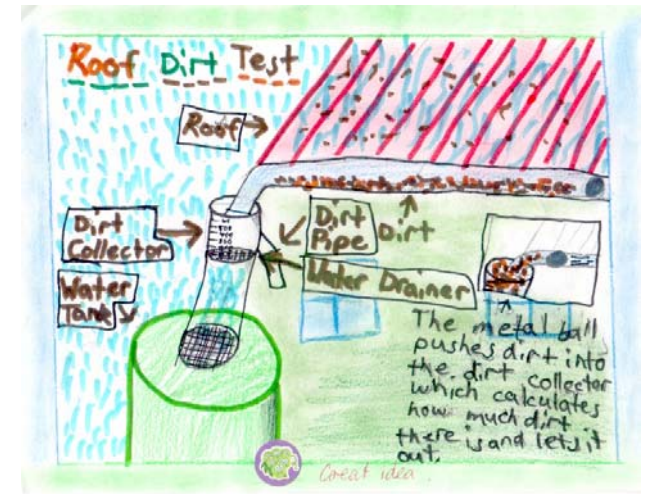 Roof Dirt Test
Roof
Dirt
Collector
Dirt
Pipe
Dirt
Water
Tank
Water Drainer
The metal ball
pushes dirt into
the dirt collector
which calculates
how much dirt
there is and lets it
out.
Great idea.